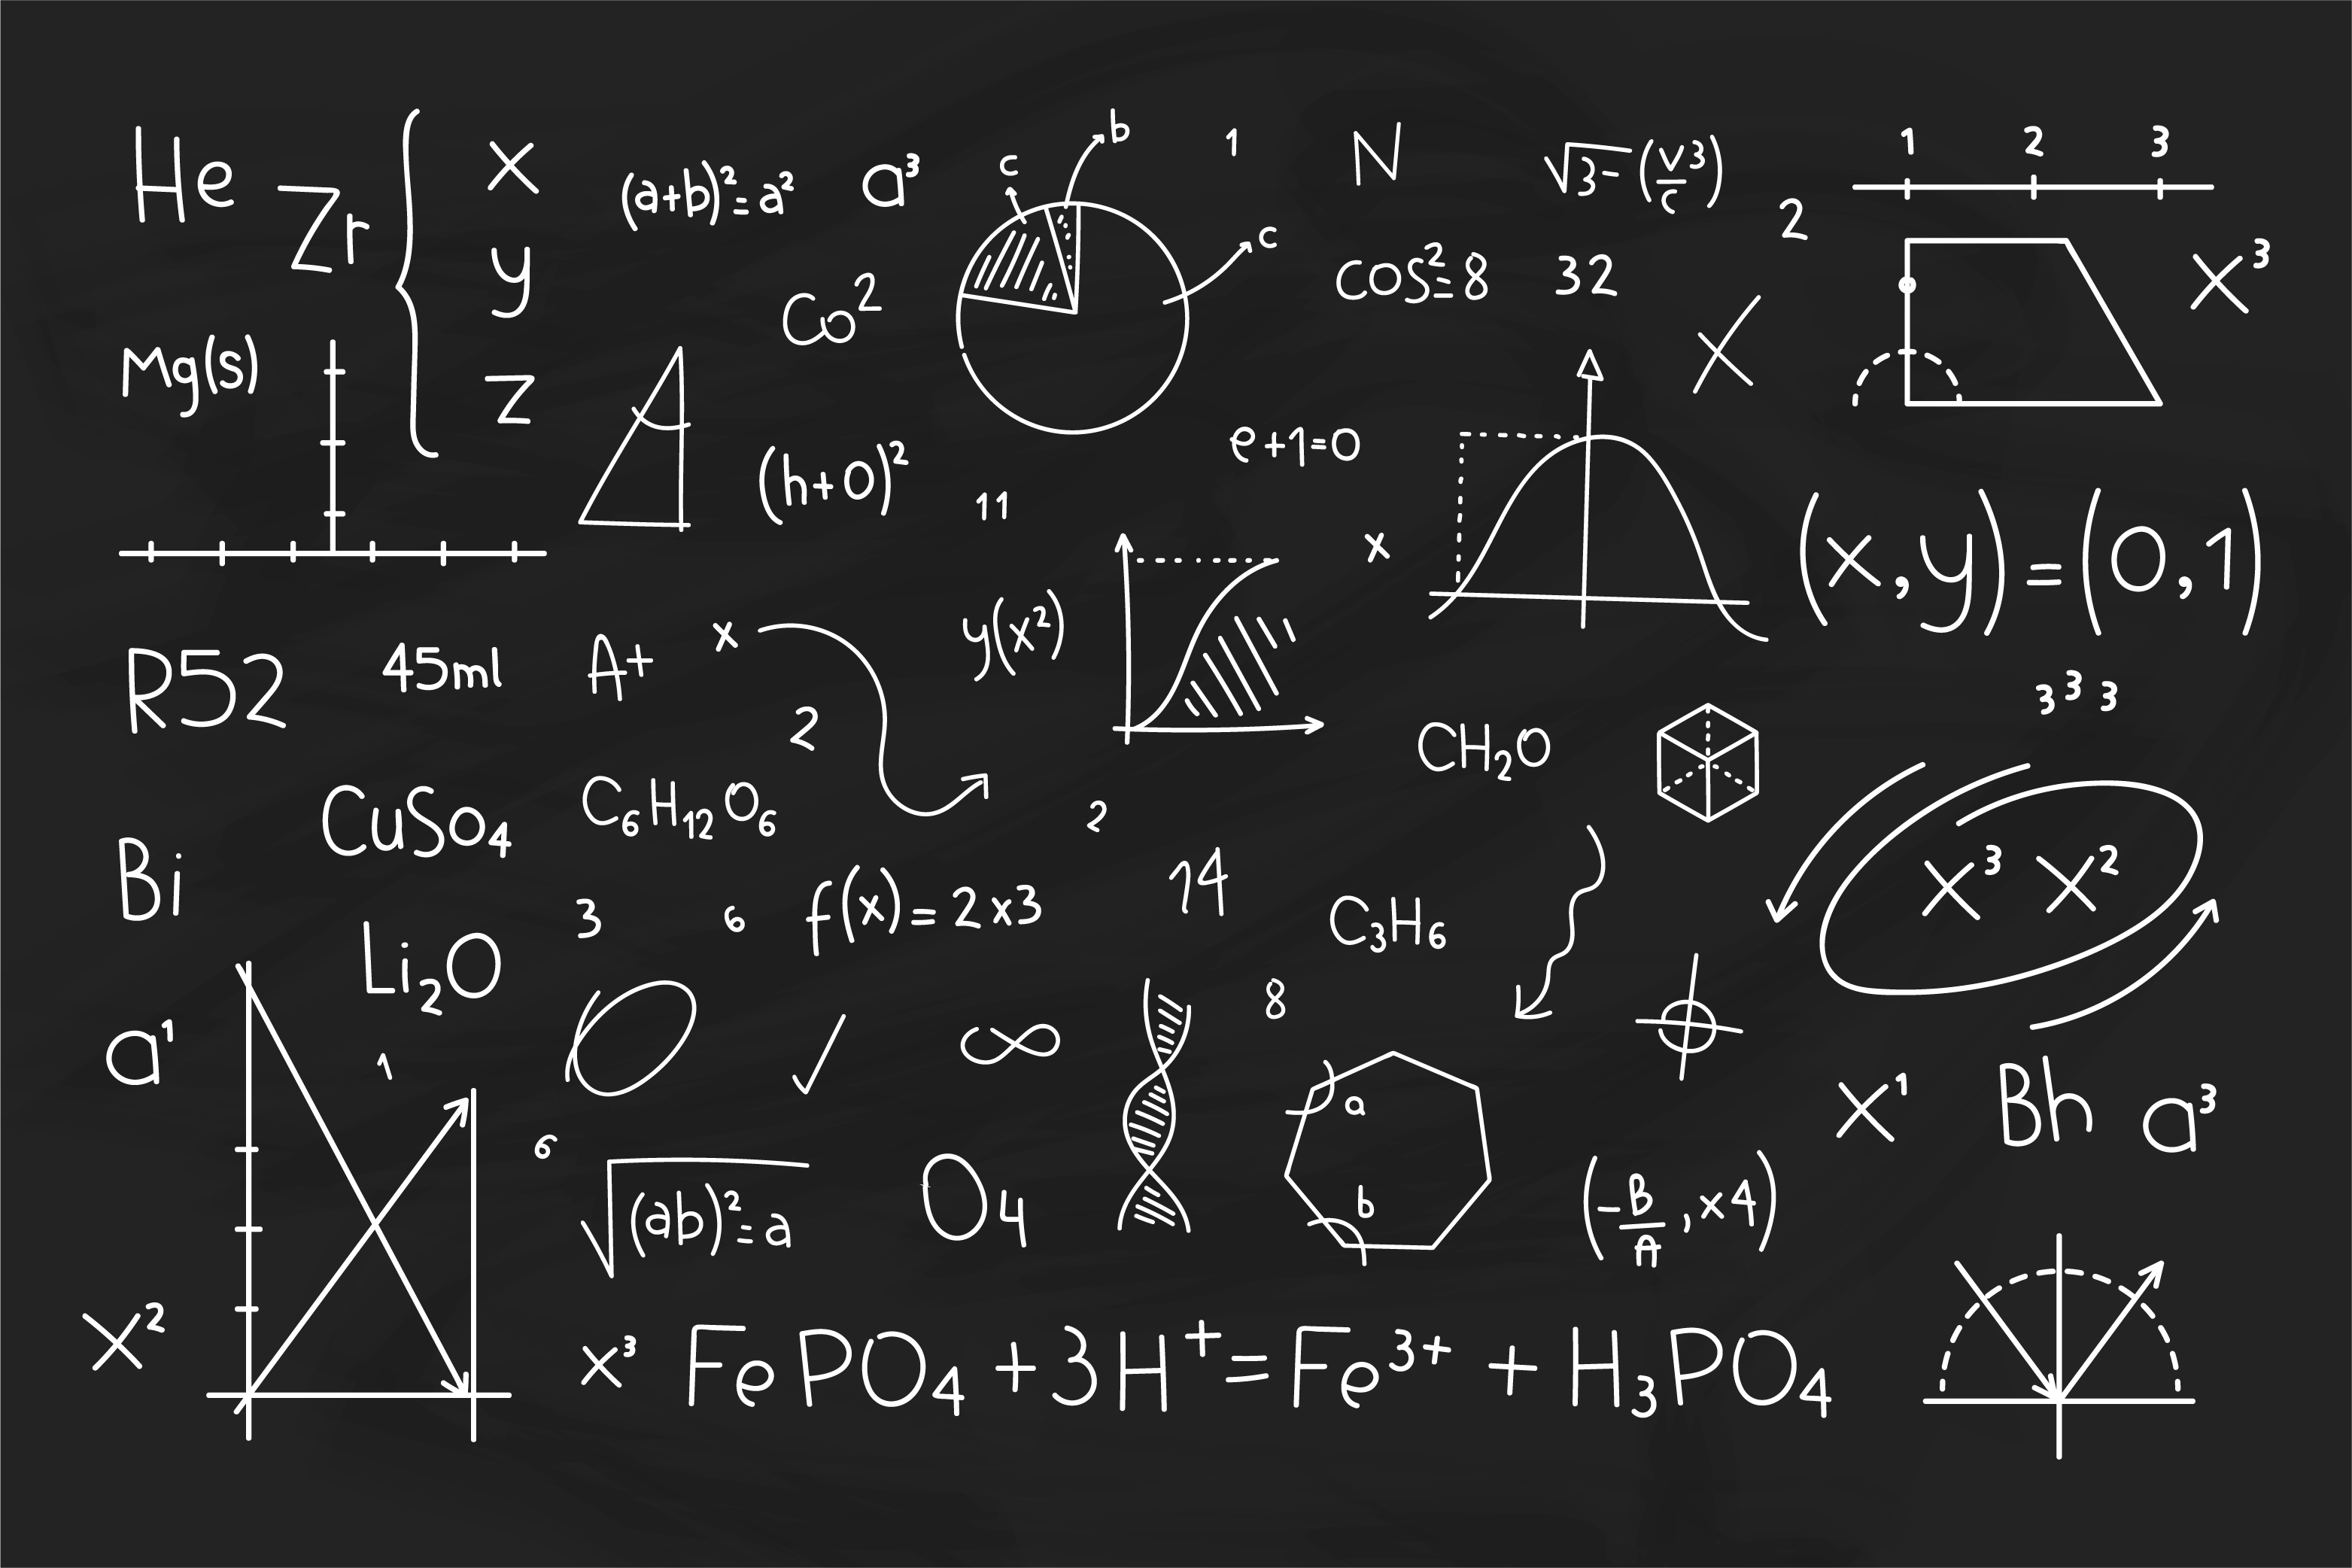 He Zr { x y z
(a+b)²=a² a³
c b c
1 N
√3-(v/c ³)
2
1 2 3
Co²
cos²=8 32
x
x³
Mg(s)
(h+0)²
e+1=0
11
x
(x,y)=(0,1)
R52 45ml A+ x
2
y(x²)
3³3
CH₂O
CuSo₄ C₆H₁₂O₆
2
Bi
3 6 f(x)=2x3
14
C₃H₆
x³ x²
Li₂O
8
a¹
1
∞
a
x¹ Bh a³
6
√(ab)²=a
O₄
b
(-B/A, x4)
x²
x³ FePO₄+3H⁺=Fe³⁺+H₃PO₄